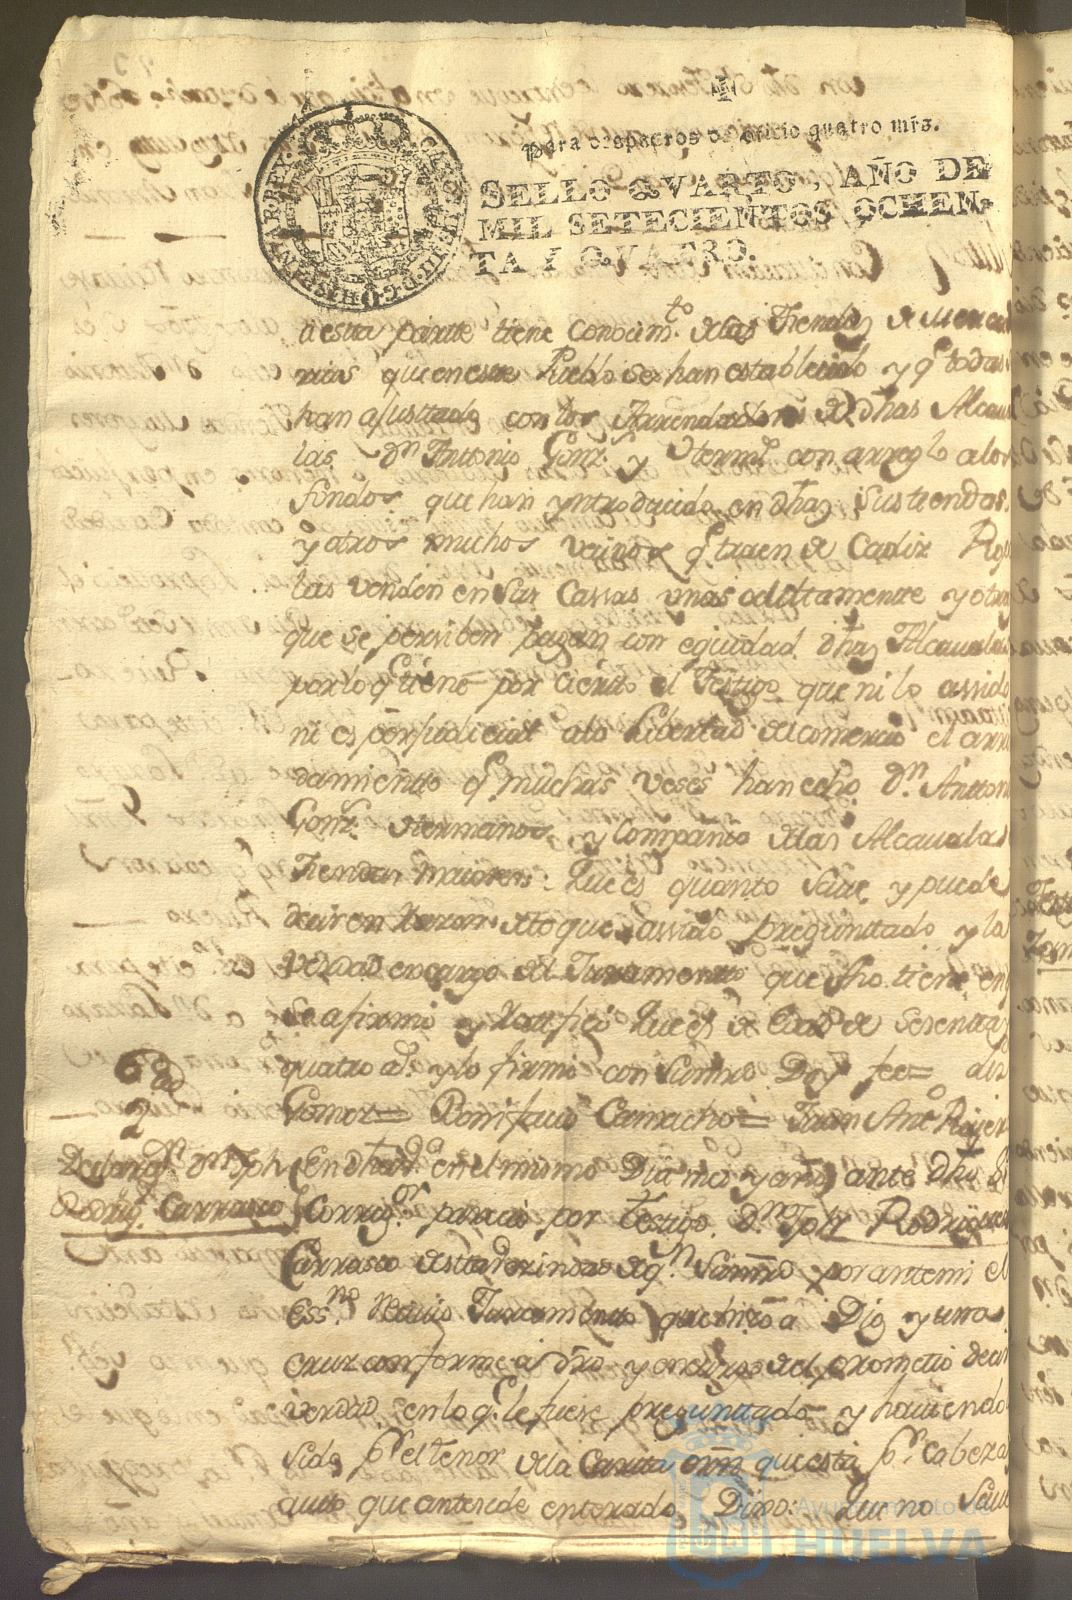 Para despachos de oficio quatro mrs.
SELLO QVARTO, AÑO DE
MIL SETECIENTOS OCHEN-
TA Y QVATRO.
a esta partte tiene Conocim.to de las Tiendas de Merca
rias que en este Pueblo se han establecido y q.e todas
han ajusttado con los Arrendadores de dhas Alcava
las Dn Antonio Gonz. y Herm.s con arreglo a los
fondos que han yntroducido en dhas sus tiendas
y otros muchos vecinos q.e traen de Cadiz Rop
las venden en sus Cassas unas ocultamentte y otras
que se perciben pagan con equidad dhas Alcavalas
por lo q.e tiene por cierto el Testigo que ni lo assido
ni es perjudicial a la Livertad del comercio el arren
damientto q.e muchas veses han echo Dn. Antton
Gonz. Hermanos y Compania de las Alcavalas
Tiendas maiores: Que es quanto save y puede
decir en Razon de lo que assido pregunttado y la
verdad en cargo del Juramentto que fho tiene en
se afirmó y Ratificó que es de Edad de Sesentta y
quatro a.s y lo firmó con Su mrd Doy fee=
Gomez= Bonifacio Camacho= Juan Antt.o
Declaraz.n Dn Jph
Rodrig. Carrasco
En dha V.a en el mismo Dia mes y año ante dho S
Correx.or parecio por testigo Dn Jph Rodriguez
Carrasco de esta vecindad de q.n Su mrd por ante mi el
Ess.no Recivio Juramentto que hizo a Dios y una
cruz conforme a dro y en cargo del prometio decir
verdad en lo q.e le fuese pregunttado y haviendo
sido p.r el tenor de la Carta orn que esta p.r Cabeza
autto que antesede enterado Dixo: Que no Save
Ayuntamiento de
HUELVA